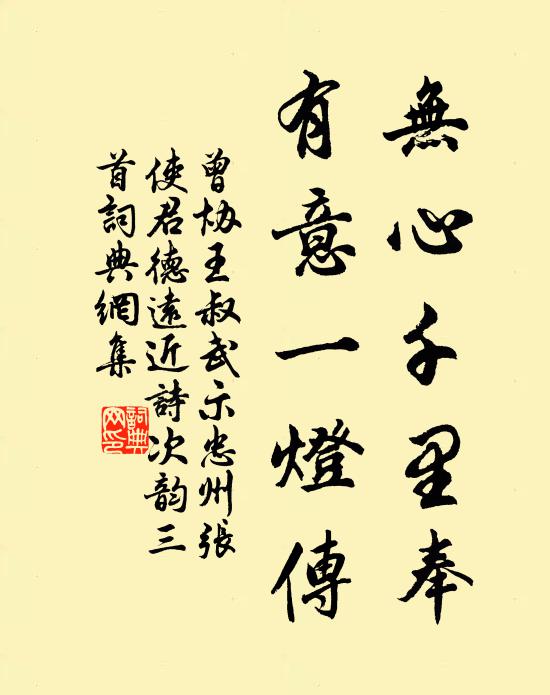 無心千里奉
有意一燈傳
曾協王叔武示忠州張
使君德遠近詩次韵三
首詞典網集
詞典
网印